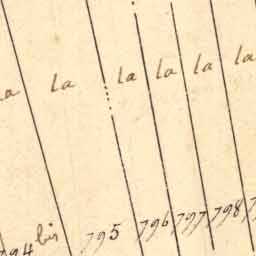 la la la la la la
794 bis 795 796 797 798